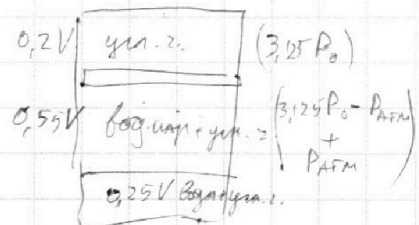 0,2V угл. г. (3,125 P₀)
0,55V вод. пар + угл. г. (3,125P₀ - Pатм + Pатм)
0,25V вода+угл. г.